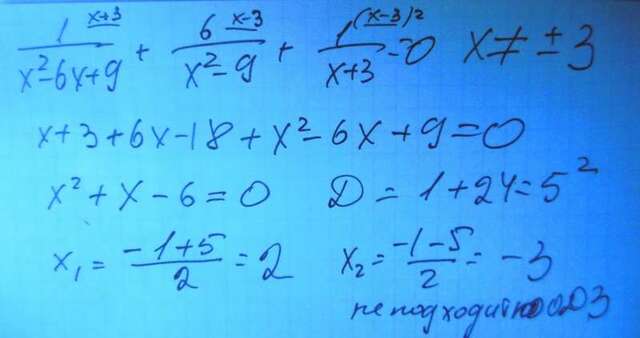 1 (x+3) / (x²-6x+9) + 6 (x-3) / (x²-9) + 1 (x-3)² / (x+3) = 0 x ≠ ±3
x+3+6x-18+x²-6x+9=0
x²+x-6=0 D=1+24=5²
x₁ = (-1+5)/2 = 2 x₂ = (-1-5)/2 = -3
не подходит по ОДЗ